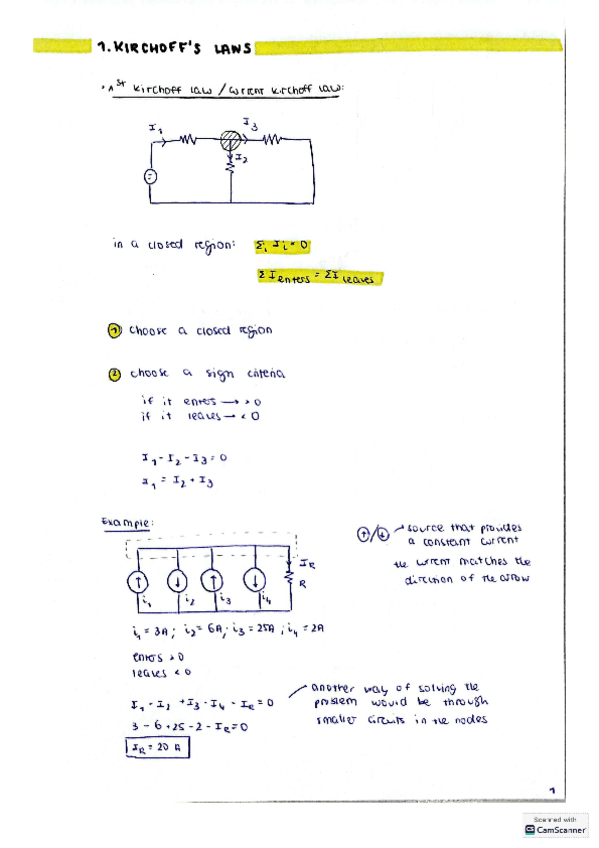 1. KIRCHOFF'S LAWS
· 1st Kirchoff law / current Kirchoff law:
I1
I3
I2
in a closed region: Σi Ii = 0
Σ I enters = ΣI leaves
1 choose a closed region
2 choose a sign criteria
if it enters → > 0
if it leaves → < 0
I1 - I2 - I3 = 0
I1 = I2 + I3
Example:
source that provides
a constant current
the current matches the
direction of the arrow
IR
R
i1 i2 i3 i4
i1 = 3A ; i2 = 6A ; i3 = 25A ; i4 = 2A
enters > 0
leaves < 0
I1 - I2 + I3 - I4 - IR = 0
3 - 6 + 25 - 2 - IR = 0
IR = 20 A
another way of solving the
problem would be through
smaller circuits in the nodes
1
Scanned with
CS CamScanner